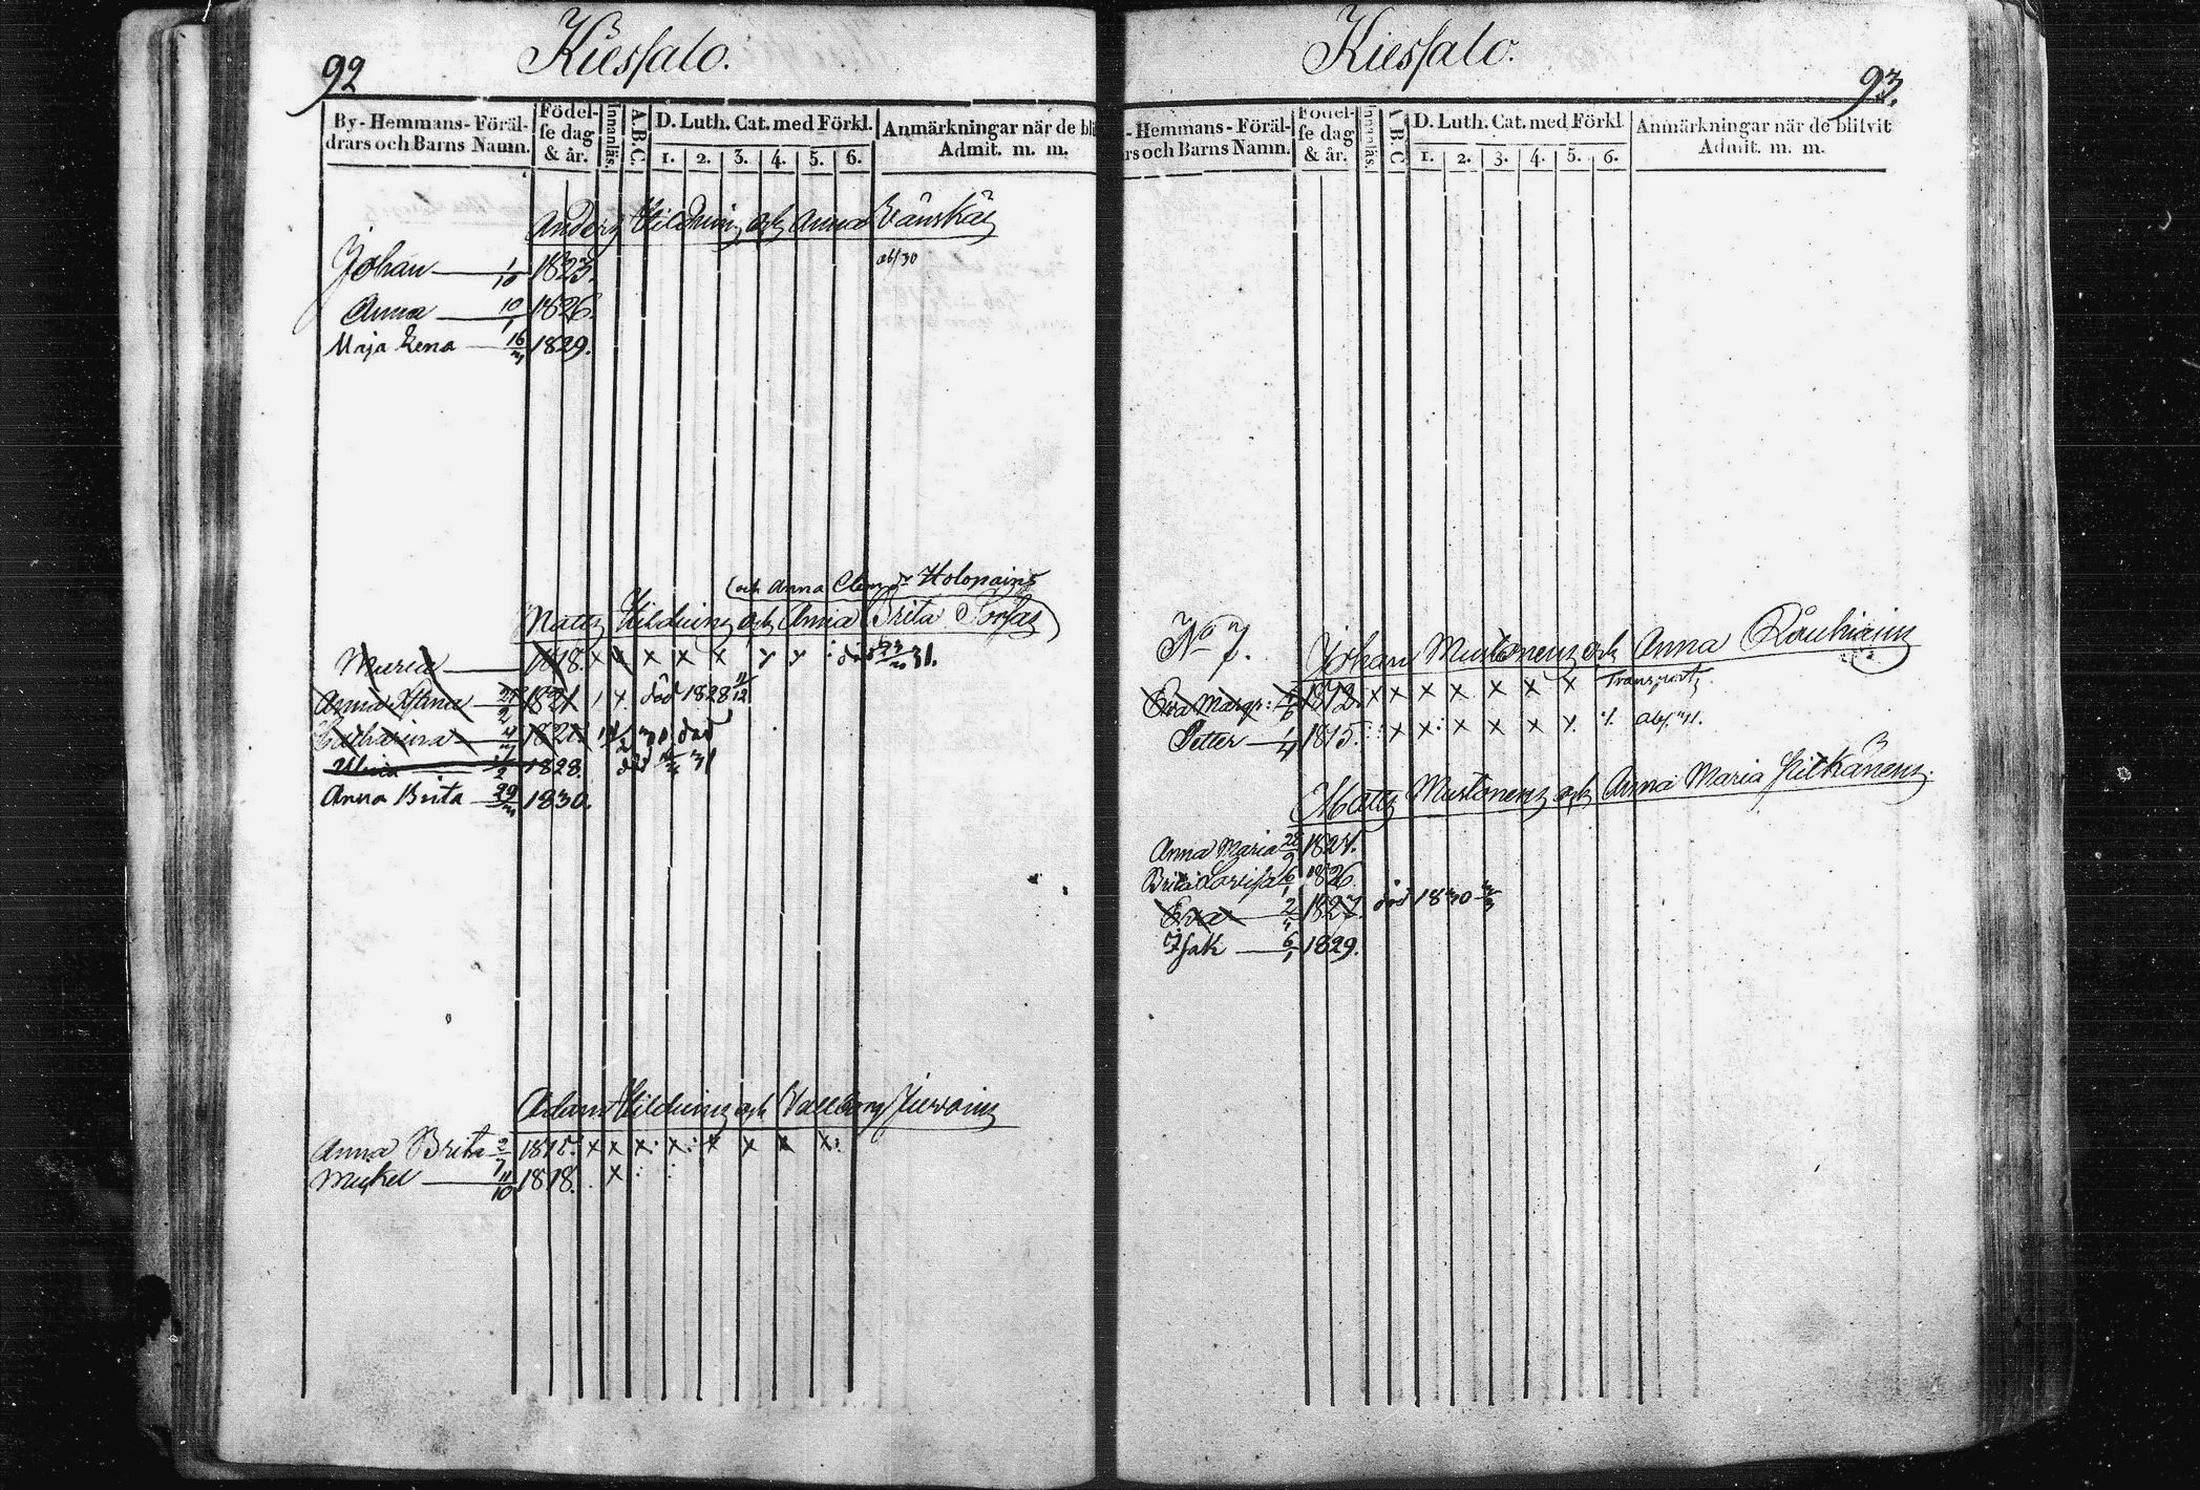 92
Kiessalo.
By-Hemmans-Föräl-drars och Barns Namn.
Födel-se dag & år.
Innanläs.
A.B.C.
D. Luth. Cat. med Förkl.
1. 2. 3. 4. 5. 6.
Anmärkningar när de bli
Admit. m. m.
Anders Hildin och Anna Wänskä
Johan 1/10 1823. abs 30
Anna 10/1 1826.
Maja Lena 16/3 1829.
(och Anna Clem Holopain
Matts Hilduin och Anna Brita
Maria 1818. x x x x x y y död 31.
Anna Stina 1821 1 x död 1828 11/12
Catharina död
1828. död 31
Anna Brita 29/3 1830.
Adam Hilduin och Wallborg
Anna Brita 2/7 1815. x x x x x x x x
Mickel 11/10 1818. x
93.
Kiessalo.
-Hemmans-Föräl-
rs och Barns Namn.
Födel-se dag & år.
Innanläs.
A B C
D. Luth. Cat. med Förkl.
1. 2. 3. 4. 5. 6.
Anmärkningar när de blifvit
Admit. m. m.
No 7. Johan Mustonen och Anna Räuhiain
Eva Margr: 1812. x x x x x x x Transport
Petter 1/4 1815. x x x x x x. abs.
Matts Mustonen och Anna Maria Pitkänen
Anna Maria 28/9 1824.
Brita Lovisa 6/1 1826
Eva 2/4 1827. död 1830 3/3
Isak 6/1 1829.